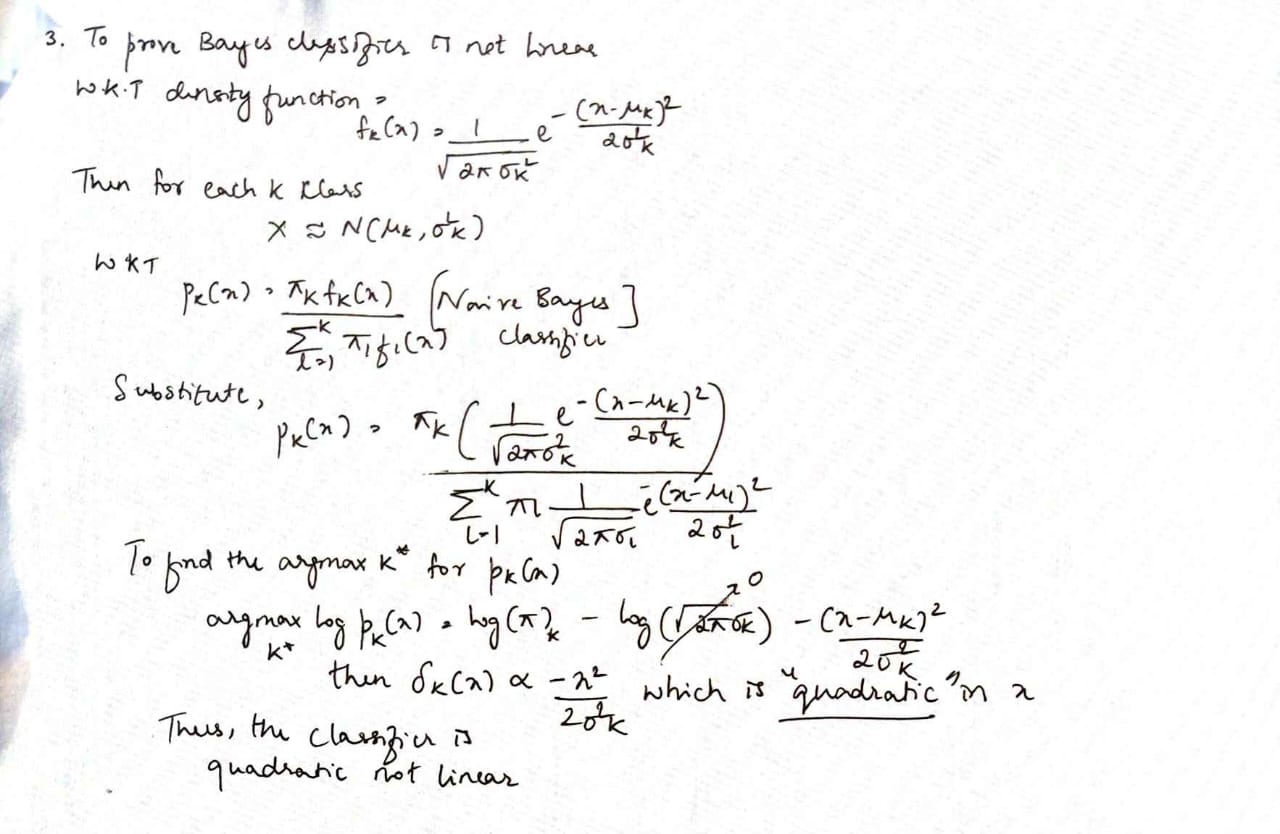 3. To prove Bayes classifier is not linear
W.K.T density function =
fₖ(x) = 1/√(2πσₖ²) e^(-(x-μₖ)²/2σₖ²)
Then for each k class
X ≈ N(μₖ, σₖ²)
WKT
pₖ(x) = πₖfₖ(x) / Σ_{l=1}^{K} πₗfₗ(x) [Naive Bayes classifier]
Substitute,
pₖ(x) = πₖ(1/√(2πσₖ²) e^(-(x-μₖ)²/2σₖ²)) / Σ_{l=1}^{K} πₗ 1/√(2πσₗ) e^(-(x-μₗ)²/2σₗ²)
To find the argmax k* for pₖ(x)
argmax_{k*} log pₖ(x) = log(π)ₖ - log(√(2πσₖ)) - (x-μₖ)²/2σₖ²
then δₖ(x) ∝ -x²/2σₖ² which is "quadratic" in x
Thus, the classifier is
quadratic not linear